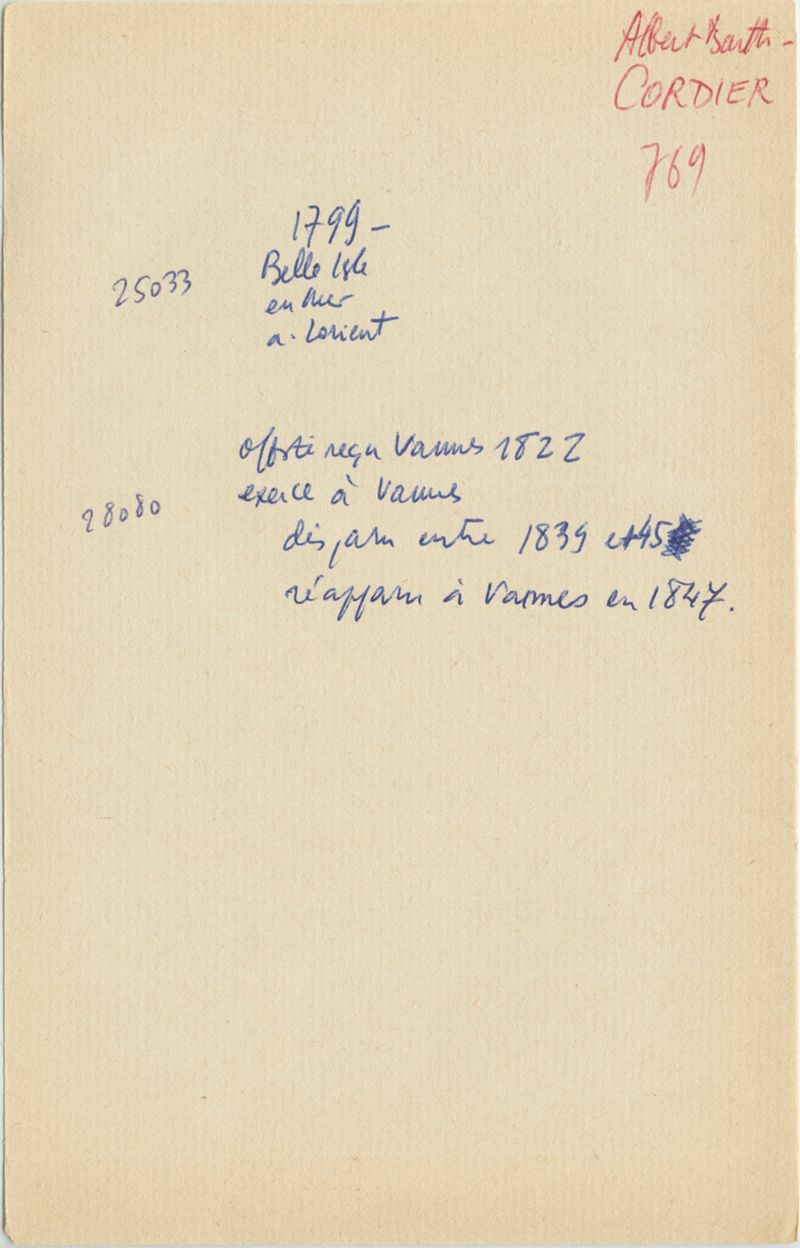 Albert Barth-
CORDIER
769
1799 -
25033
Belle Isle
en Mer
a. Lorient
offsté reçu Vannes 1822
28080
exerce à Vannes
disparu entre 1839 et 45
réapparu à Vannes en 1847.